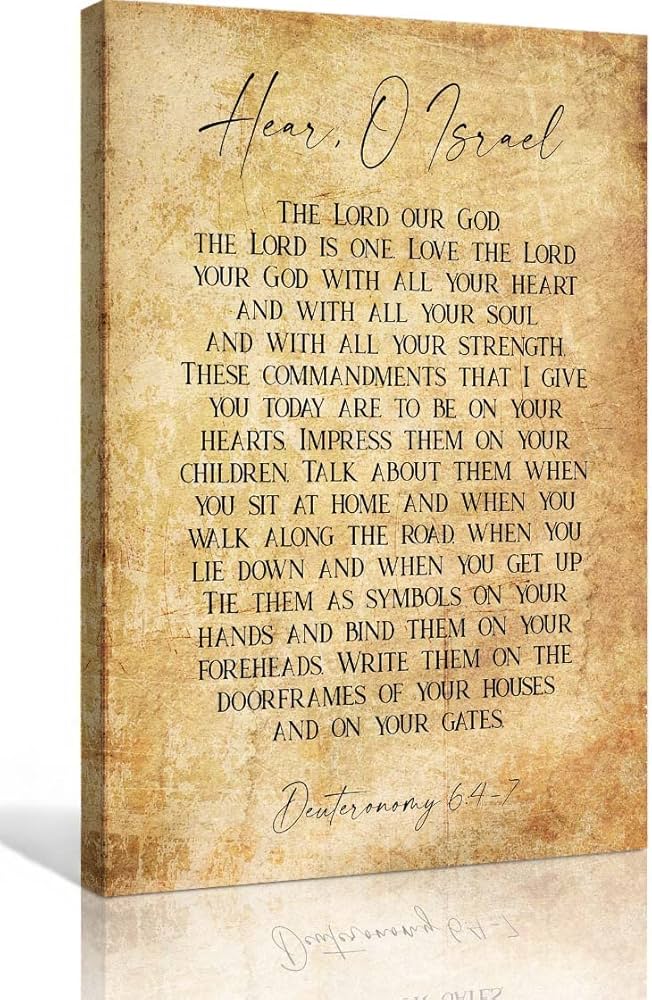 Hear, O Israel
The Lord our God,
the Lord is one. Love the Lord
your God with all your heart
and with all your soul
and with all your strength.
These commandments that I give
you today are to be on your
hearts. Impress them on your
children. Talk about them when
you sit at home and when you
walk along the road, when you
lie down and when you get up.
Tie them as symbols on your
hands and bind them on your
foreheads. Write them on the
doorframes of your houses
and on your gates.
Deuteronomy 6:4-7